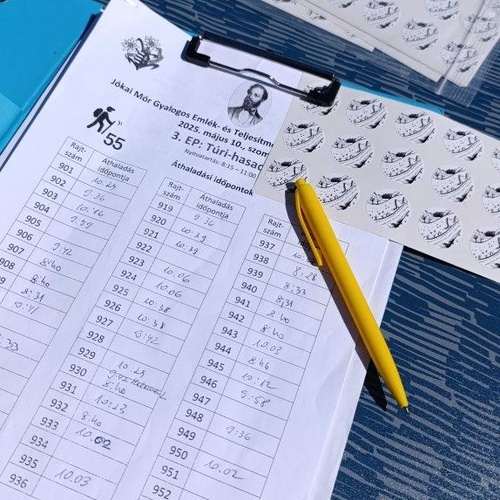 Jókai Mór Gyalogos Emlék- és Teljesítmé
2025. május 10., szom
3. EP: Túri-hasad
Nyitvatartás: 8:15 – 11:00
55
Áthaladási időpontok
Rajt-szám Áthaladás időpontja
901 10.29
902 9:36
903 10.16
904 9:59
905
906 9:42
907
908 8:40
909 8:31
Rajt-szám Áthaladás időpontja
919 9:36
920 10:39
921 10:39
922
923 10.06
924 10.06
925 10:38
926 10:38
927 9:42
928
929 10:29
930
931 8:40
932 10:13
933 8:40
934 10.02
935
936 10.03
Rajt-szám
937
938 8:28
939 8:33
940 8:31
941 8:40
942 8:40
943 10.03
944
945 8:46
946 10:12
947 9:58
948
949 9:36
950
951 10.02
952